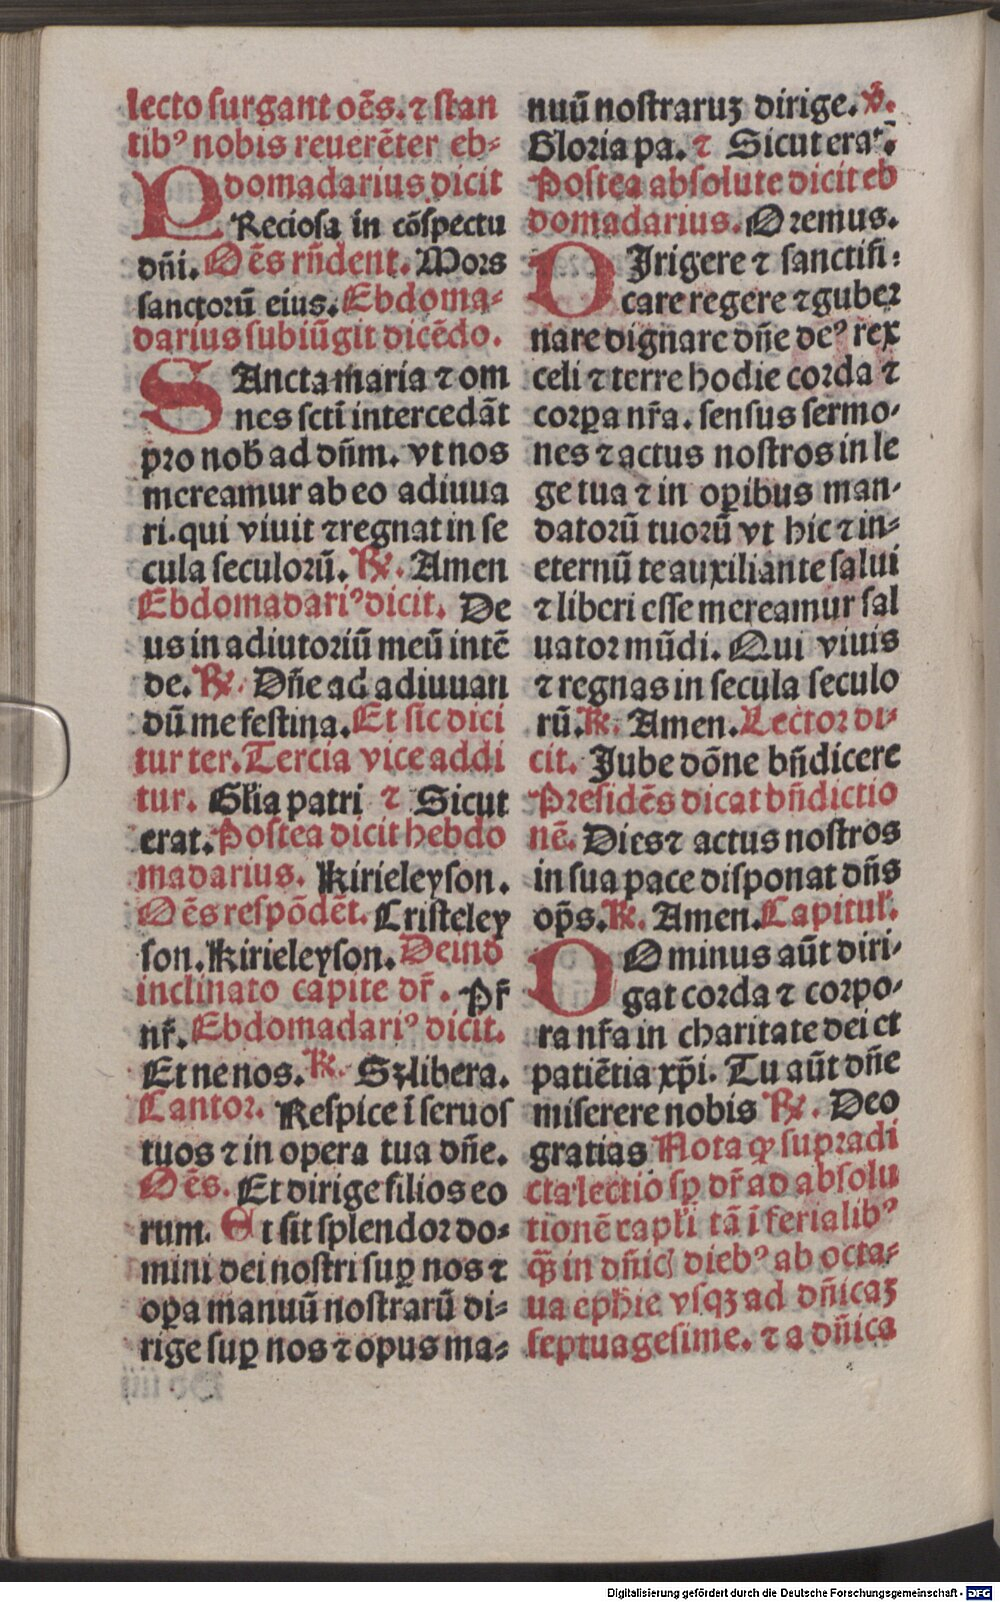 lecto surgant oēs. ⁊ stan
tibꝰ nobis reuerēter eb⸗
domadarius dicit
PReciosa in cōspectu
dn̄i. Oēs rn̄dent. Mors
sanctorū eius. Ebdoma⸗
darius subiūgit dicēdo.
SAncta maria ⁊ om
nes sctī intercedāt
pro nob̄ ad dn̄m. vt nos
mereamur ab eo adiuua
ri. qui viuit ⁊ regnat in se
cula seculorū. ℟. Amen
Ebdomadariꝰ dicit. De
us in adiutoriū meū intē
de. ℟. Dn̄e ad adiuuan
dū me festina. Et sic dici
tur ter. Tercia vice addi
tur. Gl̄ia patri ⁊ Sicut
erat. Postea dicit hebdo
madarius. Kirieleyson.
Oēs respōdēt. Cristeley
son. Kirieleyson. Deind
inclinato capite dr̄. Pr̄
nr̄. Ebdomadariꝰ dicit.
Et ne nos. ℟. Sꝫ libera.
Cantor. Respice ī seruos
tuos ⁊ in opera tua dn̄e.
Oēs. Et dirige filios eo
rum. Et sit splendor do⸗
mini dei nostri suꝑ nos ⁊
oꝑa manuū nostrarū di⸗
rige suꝑ nos ⁊ opus ma⸗
nuū nostraruꝫ dirige. ℣.
Gloria pa. ⁊ Sicut erat.
Postea absolute dicit eb
domadarius. Oremus.
DIrigere ⁊ sanctifi⸗
care regere ⁊ guber
nare dignare dn̄e deꝰ rex
celi ⁊ terre hodie corda ⁊
corꝑa nr̄a. sensus sermo⸗
nes ⁊ actus nostros in le
ge tua ⁊ in oꝑibus man⸗
datorū tuorū vt hic ⁊ in⸗
eternū te auxiliante salui
⁊ liberi esse mereamur sal
uator mūdi. Qui viuis
⁊ regnas in secula seculo
rū. ℟. Amen. Lector di⸗
cit. Jube dōne bn̄dicere
Presidēs dicat bn̄dictio
nē. Dies ⁊ actus nostros
in sua pace disponat dn̄s
op̄s. ℟. Amen. Capitul̄.
DOminus aūt diri⸗
gat corda ⁊ corpo⸗
ra nr̄a in charitate dei et
patiētia xp̄i. Tu aūt dn̄e
miserere nobis ℟. Deo
gratias Nota ꝙ supradi
cta lectio sꝑ dr̄ ad absolu
tionē capl̄i tā ī ferialibꝰ
q̄ꝫ in dn̄ic̄ diebꝰ ab octa⸗
ua eph̄ie vsqꝫ ad dn̄icaꝫ
septuagesime. ⁊ a dn̄ica
Digitalisierung gefördert durch die Deutsche Forschungsgemeinschaft - DFG